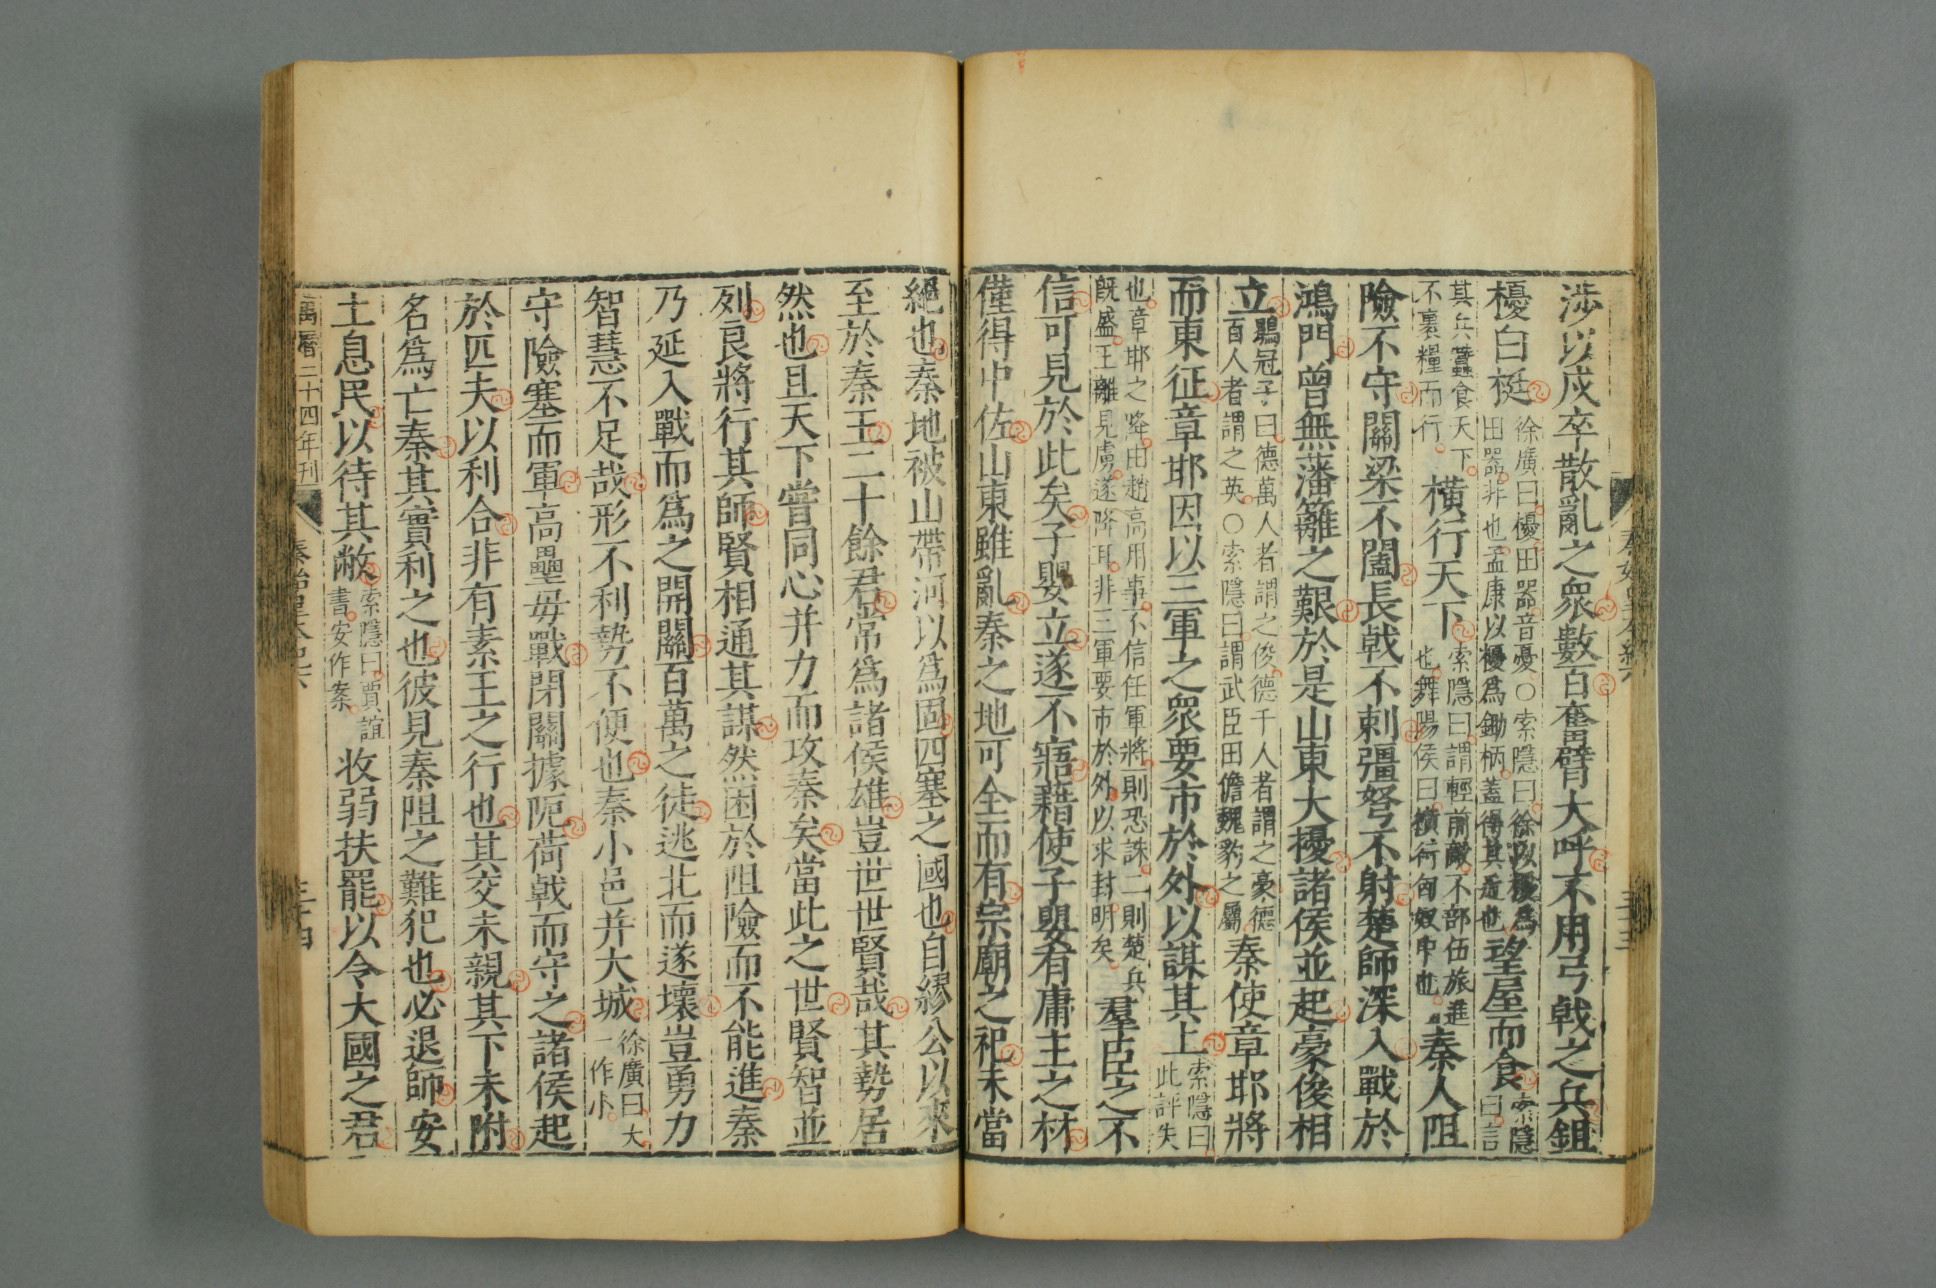 涉以戍卒散亂之衆數百奮臂大呼不用弓戟之兵鉏
櫌白梃徐廣曰櫌田器音憂○索隱曰徐以櫌爲田器非也孟康以櫌爲鋤柄蓋得其近也望屋而食索隱曰言
其兵蠶食天下不裹糧而行橫行天下索隱曰謂輕前敵不部伍旅進也舞陽侯曰橫行匈奴中也秦人阻
險不守關梁不闔長戟不刺彊弩不射楚師深入戰於
鴻門曾無藩籬之艱於是山東大擾諸侯並起豪俊相
立鶡冠子曰德萬人者謂之俊德千人者謂之豪德百人者謂之英○索隱曰謂武臣田儋魏豹之屬秦使章邯將
而東征章邯因以三軍之衆要市於外以謀其上索隱曰此評失
也章邯之降由趙高用事不信任軍將一則恐誅二則楚兵既盛王離見虜遂降耳非三軍要市於外以求封明矣羣臣之不
信可見於此矣子嬰立遂不寤藉使子嬰有庸主之材
僅得中佐山東雖亂秦之地可全而有宗廟之祀未當
絕也秦地被山帶河以爲固四塞之國也自繆公以來
至於秦王二十餘君常爲諸侯雄豈世世賢哉其勢居
然也且天下嘗同心并力而攻秦矣當此之世賢智並
列良將行其師賢相通其謀然困於阻險而不能進秦
乃延入戰而爲之開關百萬之徒逃北而遂壞豈勇力
智慧不足哉形不利勢不便也秦小邑并大城徐廣曰大一作小
守險塞而軍高壘毋戰閉關據阨荷戟而守之諸侯起
於匹夫以利合非有素王之行也其交未親其下未附
名爲亡秦其實利之也彼見秦阻之難犯也必退師安
土息民以待其敝索隱曰賈誼書安作案收弱扶罷以令大國之君
萬曆二十四年刊
秦始皇本紀六
三十四